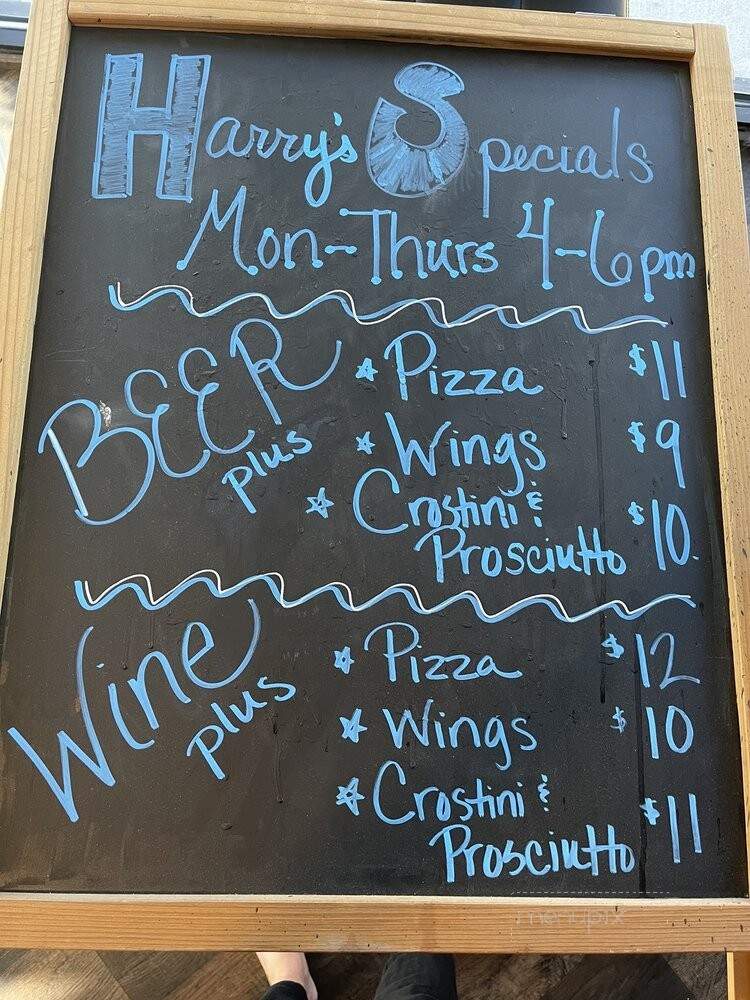 Harry's Specials
Mon-Thurs 4-6pm
BEER plus
☆ Pizza $11
☆ Wings $9
☆ Crostini &
Prosciutto $10.
Wine plus
☆ Pizza $12
☆ Wings $10
☆ Crostini &
Prosciutto $11
menupix